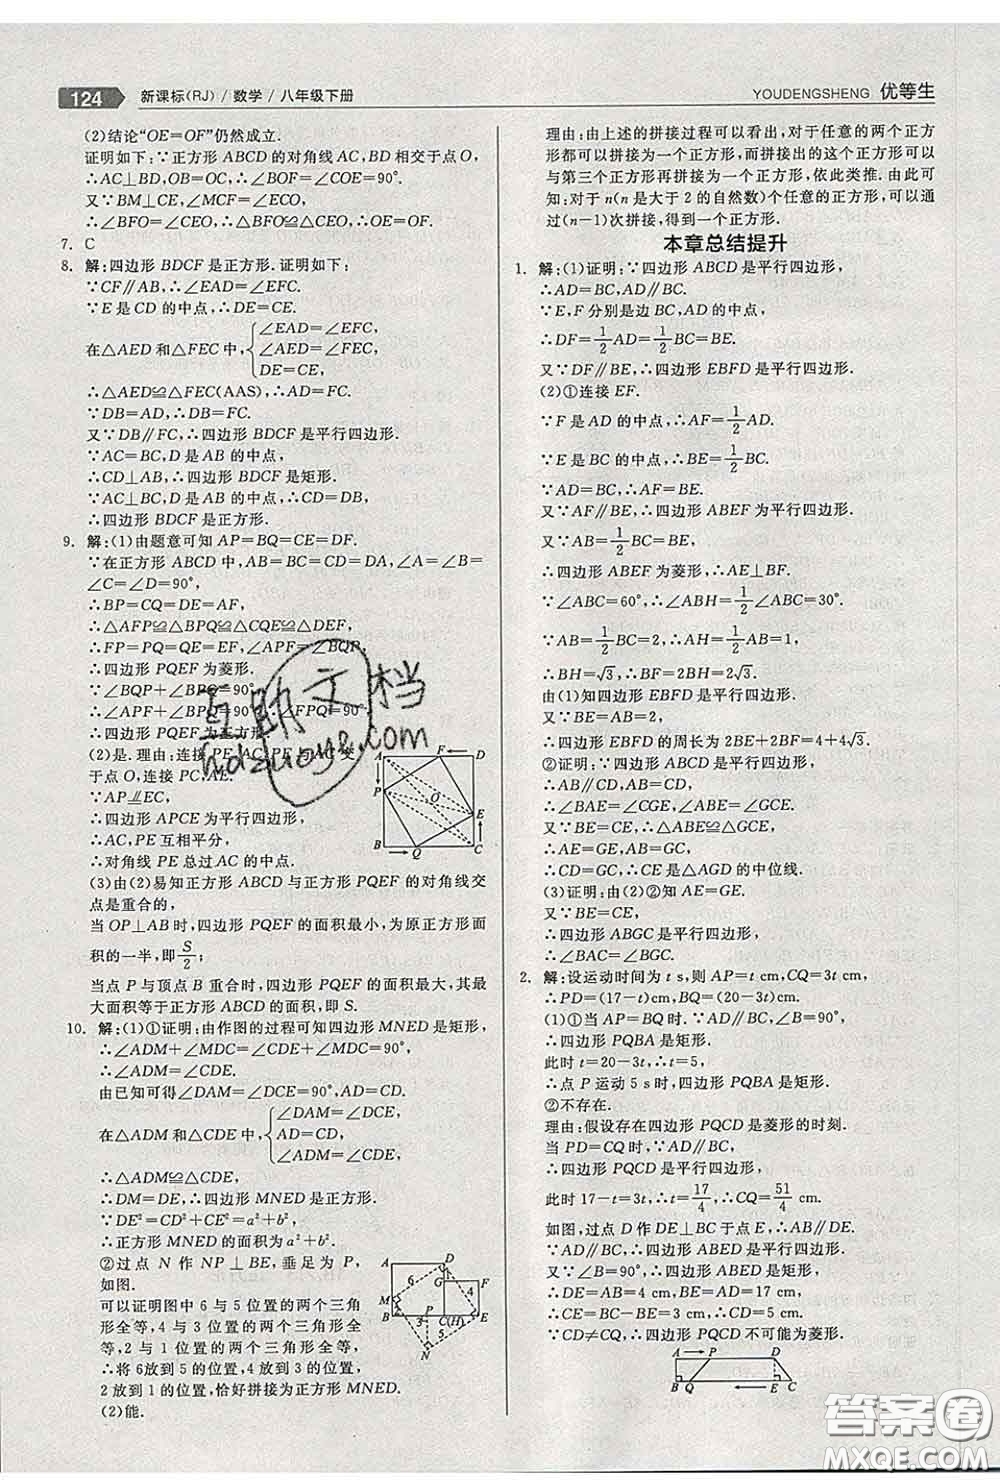 124 新课标(RJ)/数学/八年级下册
YOUDENGSHENG 优等生
(2)结论“OE=OF”仍然成立.
证明如下:∵正方形 ABCD 的对角线 AC,BD 相交于点 O,
∴AC⊥BD,OB=OC,∴∠BOF=∠COE=90°.
又∵BM⊥CE,∴∠MCF=∠ECO,
∴∠BFO=∠CEO,∴△BFO≌△CEO,∴OE=OF.
7. C
8. 解:四边形 BDCF 是正方形.证明如下:
∵CF∥AB,∴∠EAD=∠EFC.
∵E 是 CD 的中点,∴DE=CE.
在△AED 和△FEC 中,{∠EAD=∠EFC,
∠AED=∠FEC,
DE=CE,
∴△AED≌△FEC(AAS),∴AD=FC.
∵DB=AD,∴DB=FC.
又∵DB∥FC,∴四边形 BDCF 是平行四边形.
∵AC=BC,D 是 AB 的中点,
∴CD⊥AB,∴四边形 BDCF 是矩形.
又∵AC⊥BC,D 是 AB 的中点,∴CD=DB,
∴四边形 BDCF 是正方形.
9. 解:(1)由题意可知 AP=BQ=CE=DF.
∵在正方形 ABCD 中,AB=BC=CD=DA,∠A=∠B=
∠C=∠D=90°,
∴BP=CQ=DE=AF,
∴△AFP≌△BPQ≌△CQE≌△DEF,
∴FP=PQ=QE=EF,∠APF=∠BQP,
∴四边形 PQEF 为菱形.
∵∠BQP+∠BPQ=90°,
∴∠APF+∠BPQ=90°,∴∠FPQ=90°,
∴四边形 PQEF 为正方形.
(2)是.理由:连接 PE,AC,PE,AC 交
于点 O,连接 PC,AE.
∵AP∥EC,
∴四边形 APCE 为平行四边形,
∴AC,PE 互相平分,
∴对角线 PE 总过 AC 的中点.
(3)由(2)易知正方形 ABCD 与正方形 PQEF 的对角线交
点是重合的,
当 OP⊥AB 时,四边形 PQEF 的面积最小,为原正方形面
积的一半,即S/2;
当点 P 与顶点 B 重合时,四边形 PQEF 的面积最大,其最
大面积等于正方形 ABCD 的面积,即 S.
10. 解:(1)①证明:由作图的过程可知四边形 MNED 是矩形,
∴∠ADM+∠MDC=∠CDE+∠MDC=90°,
∴∠ADM=∠CDE.
由已知可得∠DAM=∠DCE=90°,AD=CD.
在△ADM 和△CDE 中,{∠DAM=∠DCE,
AD=CD,
∠ADM=∠CDE,
∴△ADM≌△CDE,
∴DM=DE,∴四边形 MNED 是正方形.
∵DE²=CD²+CE²=a²+b²,
∴正方形 MNED 的面积为 a²+b².
②过点 N 作 NP⊥BE,垂足为 P,
如图.
可以证明图中 6 与 5 位置的两个三角
形全等,4 与 3 位置的两个三角形全
等,2 与 1 位置的两个三角形也全等,
∴将 6放到 5 的位置,4放到 3 的位置,
2 放到 1 的位置,恰好拼接为正方形 MNED.
(2)能.
理由:由上述的拼接过程可以看出,对于任意的两个正方
形都可以拼接为一个正方形,而拼接出的这个正方形可以
与第三个正方形再拼接为一个正方形,依此类推.由此可
知:对于 n(n 是大于 2 的自然数)个任意的正方形,可以通
过(n-1)次拼接,得到一个正方形.
本章总结提升
1. 解:(1)证明:∵四边形 ABCD 是平行四边形,
∴AD=BC,AD∥BC.
∵E,F 分别是边 BC,AD 的中点,
∴DF=1/2AD=1/2BC=BE.
又∵DF∥BE,∴四边形 EBFD 是平行四边形.
(2)①连接 EF.
∵F 是 AD 的中点,∴AF=1/2AD.
∵E 是 BC 的中点,∴BE=1/2BC.
∵AD=BC,∴AF=BE.
又∵AF∥BE,∴四边形 ABEF 为平行四边形.
又∵AB=1/2BC=BE,
∴四边形 ABEF 为菱形,∴AE⊥BF.
∵∠ABC=60°,∴∠ABH=1/2∠ABC=30°.
∵AB=1/2BC=2,∴AH=1/2AB=1,
∴BH=√3,∴BF=2BH=2√3.
由(1)知四边形 EBFD 是平行四边形.
又∵BE=1/2BC=2,
∴四边形 EBFD 的周长为 2BE+2BF=4+4√3.
②证明:∵四边形 ABCD 是平行四边形,
∴AB∥CD,AB=CD,
∴∠BAE=∠CGE,∠ABE=∠GCE.
又∵BE=CE,∴△ABE≌△GCE,
∴AE=GE,AB=GC,
∴CD=GC,∴CE 是△AGD 的中位线.
(3)证明:由(2)②知 AE=GE.
又∵BE=CE,
∴四边形 ABGC 是平行四边形,
∴∠BAC=∠BGC.
2. 解:设运动时间为 t s,则 AP=t cm,CQ=3t cm,
∴PD=(17-t)cm,BQ=(20-3t)cm.
(1)①当 AP=BQ 时.∵∠B=90°,AD∥BC,
∴四边形 PQBA 是矩形.
此时 t=20-3t,∴t=5,
∴点 P 运动 5 s时,四边形 PQBA 是矩形.
②不存在.
理由:假设存在四边形 PQCD 是菱形的时刻.
当 PD=CQ 时,∵AD∥BC,
∴四边形 PQCD 是平行四边形,
此时 17-t=3t,∴t=17/4,∴CQ=51/4 cm.
如图,过点 D 作 DE⊥BC 于点 E,∴AB∥DE.
∵AD∥BC,∴四边形 ABED 是平行四边形.
∵∠B=90°,∴四边形 ABED 是矩形,
∴DE=AB=8 cm,BE=AD=17 cm,
∴CE=BC-BE=3 cm,∴CD=√73 cm.
∵CD≠CQ,∴四边形 PQCD 不可能为菱形.
A F D
P O
E
B Q C
A D
6
G F
M 4
B 3 P C(H) E
5
N
A P D
B Q E C
互助文档
答案圈
MXQE.COM